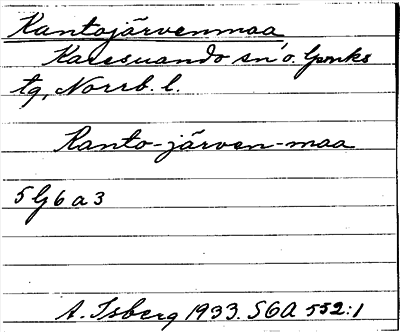 Rantojärvenmaa
Karesuando sn o. lpmks
tg, Norrb. l.
Ranto-järven-maa
5 G 6 a 3
A. Isberg 1933. SGA 552:1